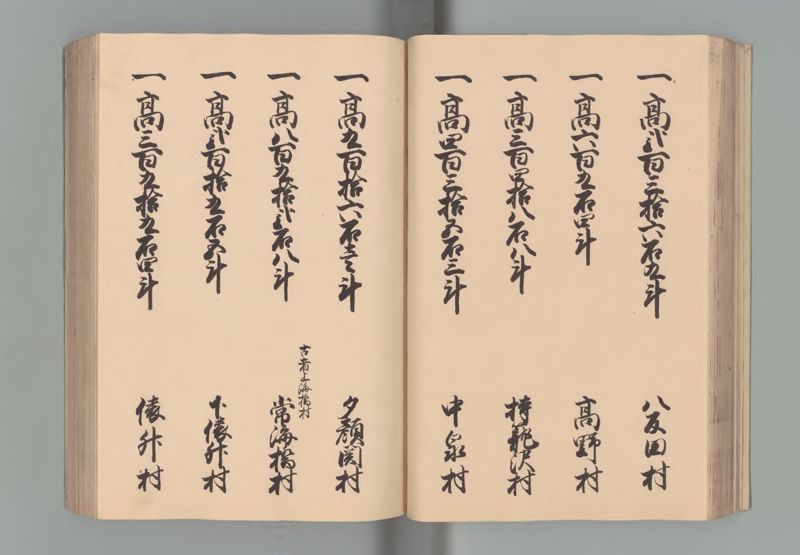 一 高弐百三拾六石九斗
八反田村
一 高六百九石四斗
高野村
一 高三百四拾八石八斗
持籠沢村
一 高四百三拾五石三斗
中泉村
一 高九百拾六石壱斗
夕顔関村
一 高八百九拾弐石八斗
古者上海橋村
常海橋村
一 高弐百拾九石五斗
下俵升村
一 高三百九拾九石四斗
俵升村